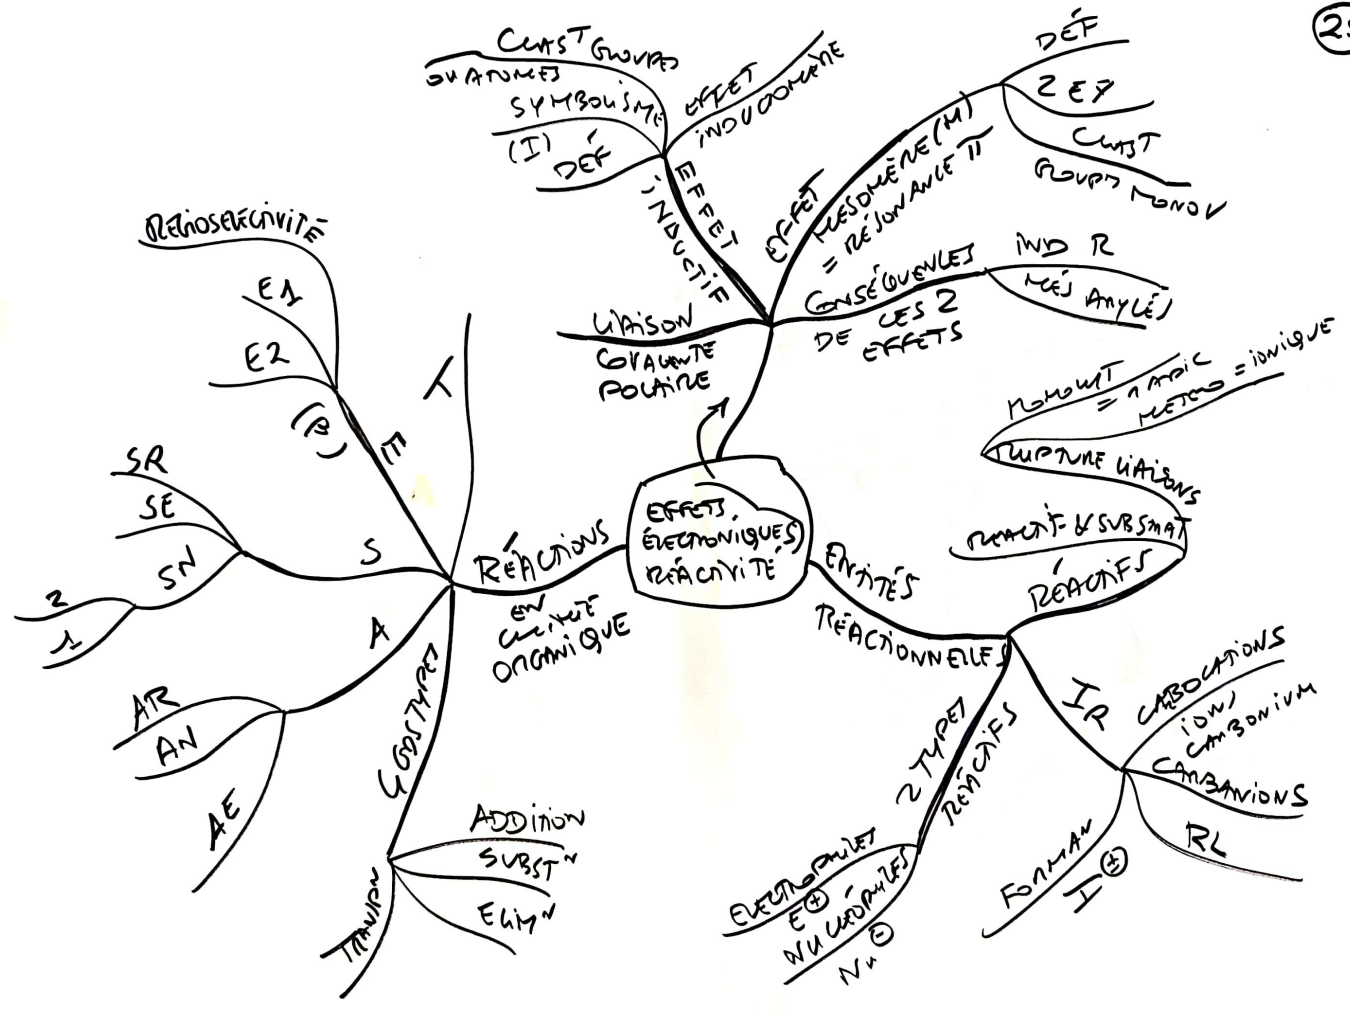 EFFETS
ÉLECTRONIQUES,
RÉACTIVITÉ
LIAISON
COVALENTE
POLAIRE
EFFET
INDUCTIF
DÉF
SYMBOLISME
(I)
CLAST GROUPES
OU ATOMES
EFFET
INDUCOMÈRE
EFFET
MÉSOMÈRE (M)
= RÉSONANCE π
DÉF
2 EF
CLAST
GROUPES MONOV
CONSÉQUENCES
DE CES 2
EFFETS
IND R
MÉS ARYLES
ENTITÉS
RÉACTIONNELLES
RÉACTIFS
RÉACTIF & SUBSTRAT
RUPTURE LIAISONS
HOMOLYT
= RADIC
HETERO = IONIQUE
IR
CARBOCATIONS
IONS
CARBONIUM
CARBANIONS
RL
FORMAN
I ±
2 TYPES
RÉACTIFS
ELECTROPHILES
E +
NUCLÉOPHILES
Nu -
RÉACTIONS
EN
CHIMIE
ORGANIQUE
T
E
(β)
REGIOSELECTIVITÉ
E1
E2
S
SR
SE
SN
2
1
A
AR
AN
AE
4 GDS TYPES
ADDITION
SUBST N
ELIM N
TRANSPN